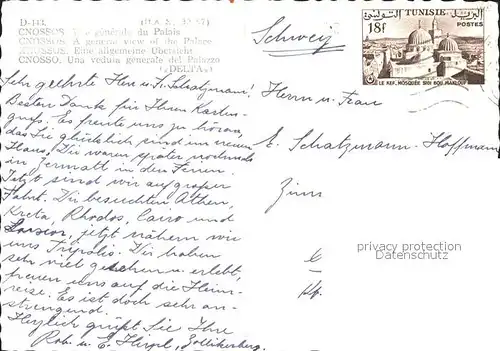 D-143.
CNOSSOS. Vue générale du Palais
CNOSSUS. A general view of the Palace
KNOSSUS. Eine allgemeine Übersicht
CNOSSO. Una veduta generale del Palazzo
«DELTA»
Schweiz
TUNISIE
18f
POSTES
LE KEF, MOSQUÉE SIDI BOU MAKLOUF
Sehr geehrte Herr u. Fr. Schatzmann,
Besten Dank für Ihren Karten-
gruß. Es freute uns zu hören,
das Sie glücklich sind im neuen
Haus. Wir waren später nochmals
in Zermatt in den Ferien.
Jetzt sind wir auf großer
Fahrt. Wir besuchten Athen,
Kreta, Rhodos, Cairo und
Luxor, jetzt nähern wir
uns Tripolis. Wir haben
sehr viel gesehen u. erlebt,
freuen uns auf die Heim-
reise. Es ist doch sehr an-
strengend.
Herzlich grüßt Sie Ihre
Rob. u. E. Zollikerberg.
Herrn u. Frau
E. Schatzmann-Hoffmann
privacy protection
watermark